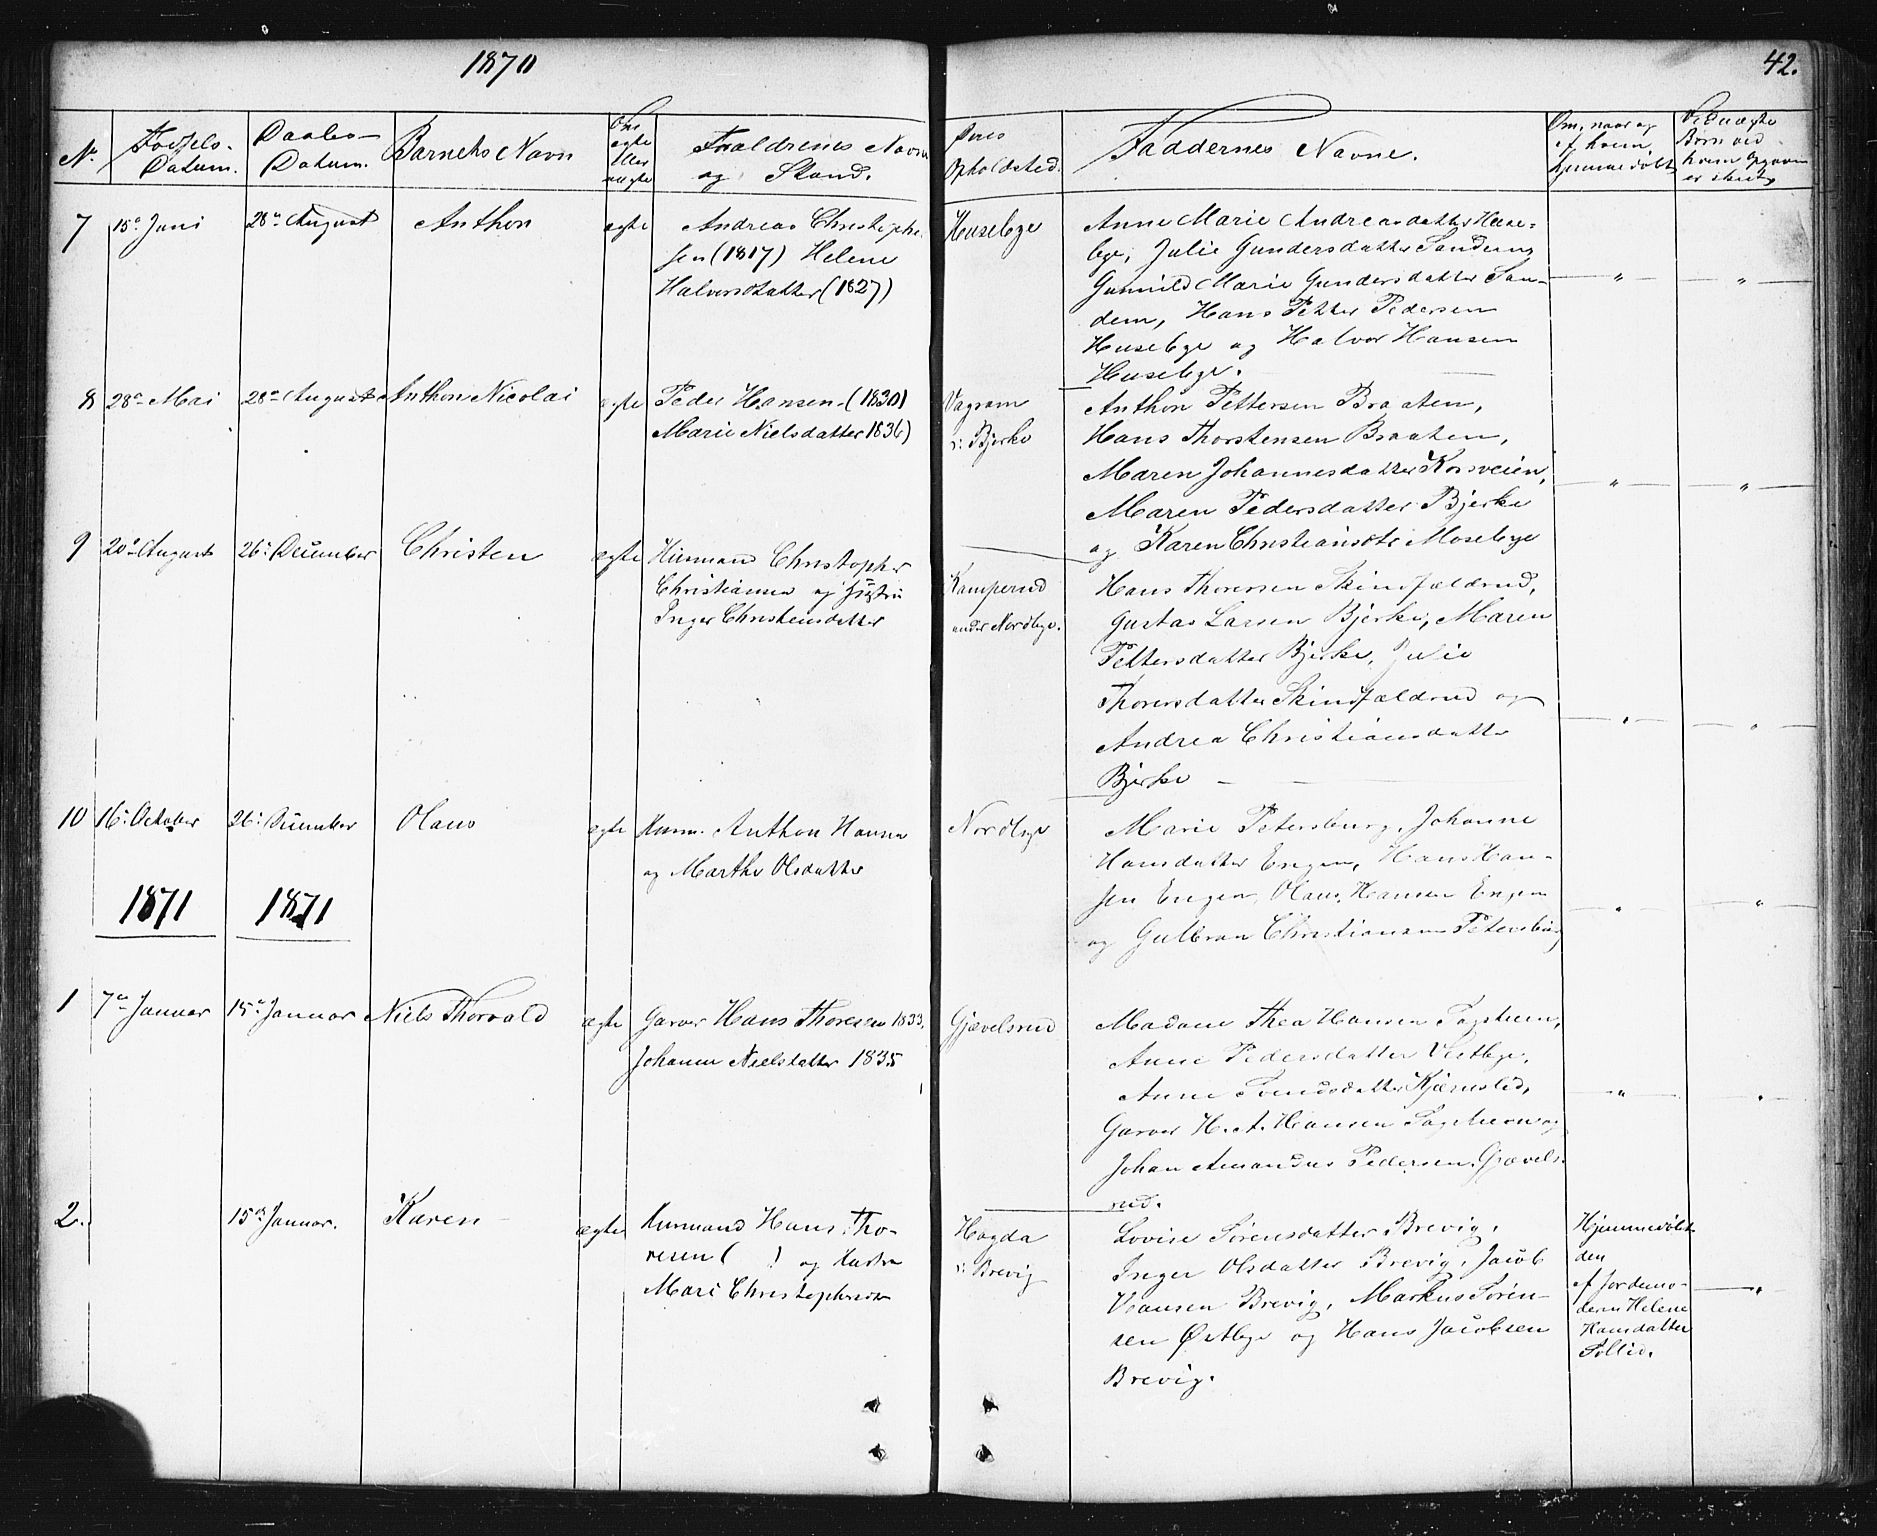 1870
42.
No.
Fødsels-
Datum.
Daabs-
Datum.
Barnets Navn
Om
ægte
eller
uægte
Forældrenes Navne
og Stand.
Deres
Opholdsted.
Faddernes Navne.
Om, naar og
af hvem
hjemmedøbt
Ved uægte
Børn ved
hvem Opgaven
er skeet
7
15de Juni
28de August
Anthon
ægte
Andreas Christophe-
sen (1817) Helene
Halvorsdatter (1827)
Husebye
Anne Marie Andreasdatter Huse-
bye, Julie Gundersdatter Sandem,
Gunnild Marie Gundersdatter San-
dem, Hans Petter Pedersen
Husebye og Halvor Hansen
Husebye.
8
28de Mai
28de August
Anthon Nicolai
ægte
Peder Hansen (1830)
Marie Nielsdatter 1836)
Vagram
v: Bjerke
Anthon Pettersen Braaten,
Hans Thorstensen Braaten,
Maren Johannesdatter Korsveien,
Maren Pedersdatter Bjerke
og Karen Christiansdtr Mosebye
9
20de August
26de December
Christen
ægte
Huusmand Christopher
Christiansen og Hustru
Inger Christensdatter
Kamperud
under Nordbye.
Hans Thoresen Skindfældrud,
Gustav Larsen Bjerke, Maren
Pettersdatter Bjerke, Julie
Thoresdatter Skindfældrud og
Andrea Christiansdatter
Bjerke
10
16de October
26de December
Olaus
ægte
Huusm. Anthon Hansen
og Marthe Olsdatter
Nordbye
Marie Petersburg, Johanne
Hansdatter Engen, Hans Han-
sen Engen, Olaus Hansen Engen
og Gulbran Christiansen Petersburg
1871
1871
1
7de Januar
15de Januar
Niels Thorvald
ægte
Garver Hans Thoresen 1833,
Johanne Nielsdatter 1835
Gjævelsrud
Madam Thea Hansen Fagstrum,
Anne Pedersdatter Vestbye,
Anne Svendsdatter Kjærnslid,
Garver H. A. Hansen og
Johan Amandus Pedersen Gjævels-
rud.
2.
15de Januar.
Karen
ægte
Huusmand Hans Tho-
resen ( ) og Hustru
Mari Christophersdtr
Hagda
v: Brevig
Lovise Sørensdatter Brevig,
Inger Olsdatter Brevig, Jacob
Hansen Brevig, Markus Søren-
sen Østbye og Hans Jacobsen
Brevig.
Hjemmedøbt
den
af Jordemo-
deren Helene
Hansdatter
Sollid.